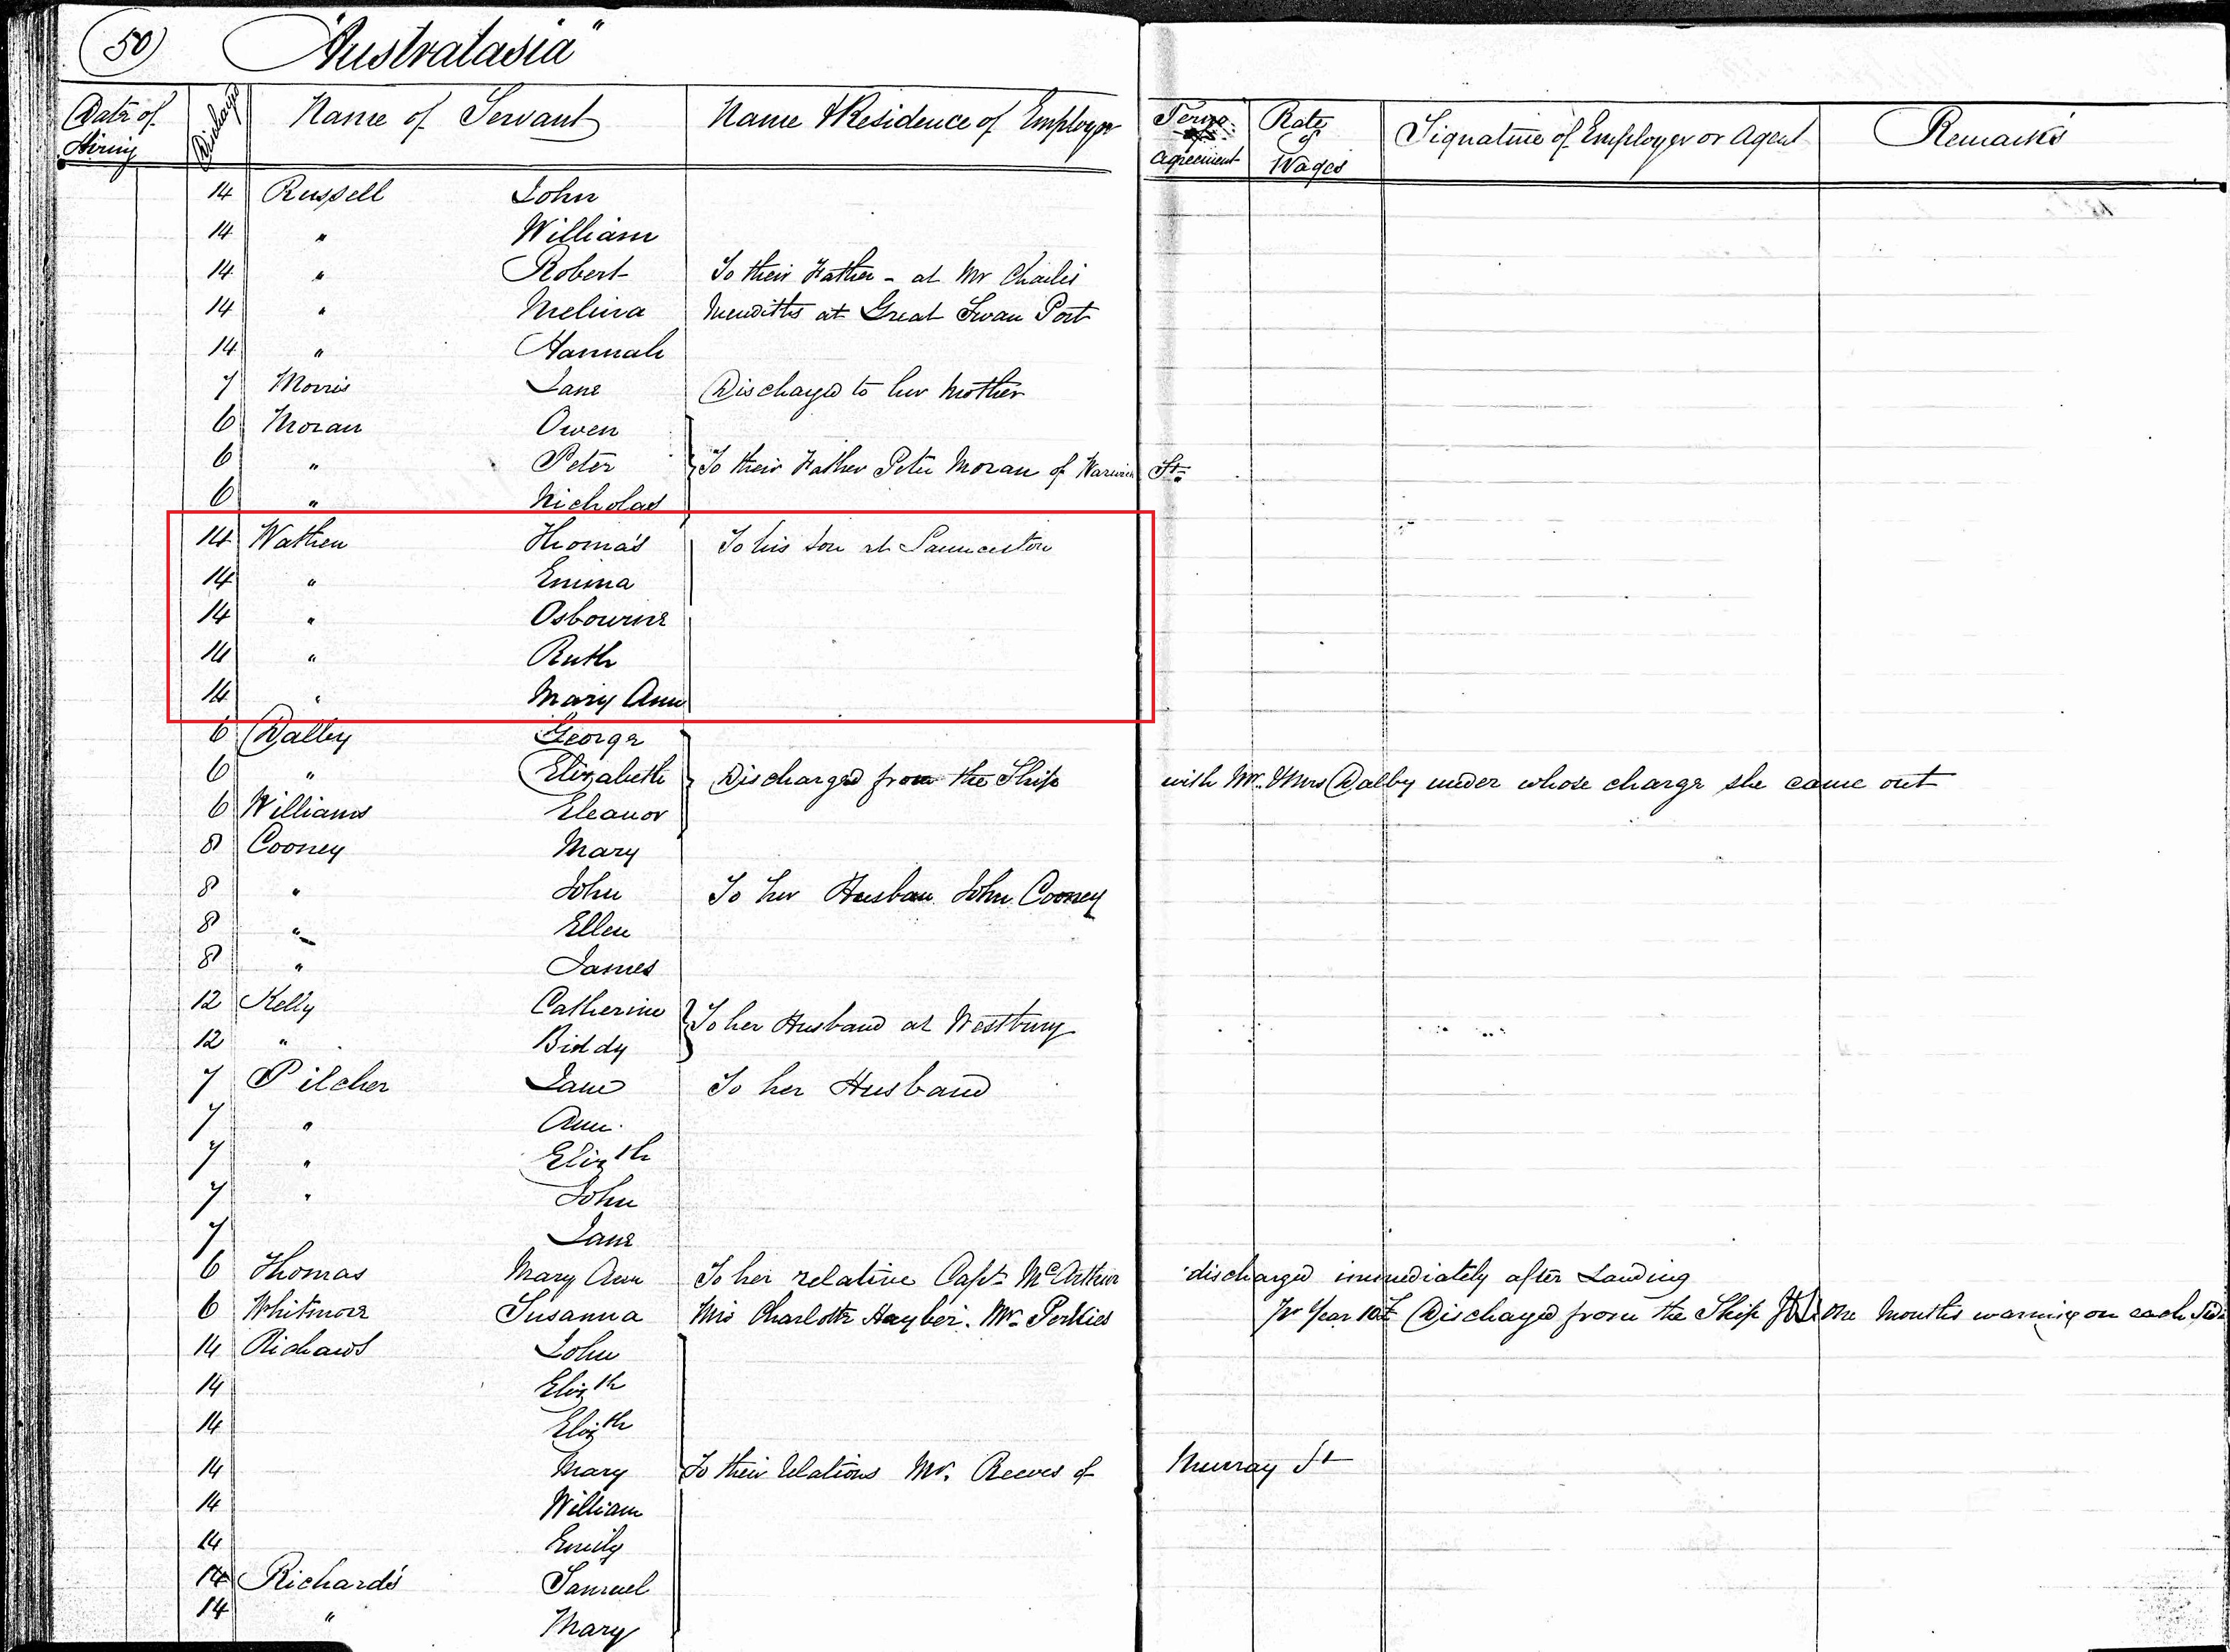 50 "Australasia"
Date of Hiring Discharged Name of Servant Name & Residence of Employer Terms of Agreement Rate of Wages Signature of Employer or Agent Remarks
14 Russell John
14 " William
14 " Robert To their Father - at Mr Charles
14 " Melina Merediths at Great Swan Port
14 " Hannah
7 Morris Jane Discharged to her Mother
6 Moran Owen
6 " Peter To their Father Peter Moran of Warwick St
6 " Nicholas
14 Wathen Thomas To his Son at Launceston
14 " Emma
14 " Osbourne
14 " Ruth
14 " Mary Ann
6 Dalby George
6 " Elizabeth Discharged from the Ship with Mr. & Mrs Dalby under whose charge she came out
6 Williams Eleanor
8 Cooney Mary
8 " John To her Husban John Cooney
8 " Ellen
8 " James
12 Kelly Catherine To her Husband at Westbury
12 " Biddy
7 Pilcher Jane To her Husband
7 " Ann
7 " Elizth
7 " John
7 Jane
6 Thomas Mary Ann To her relative Capt. McArthur discharged immediately after Landing
6 Whitmore Susanna Mrs Charlotte Mr. pr Year 10£ Discharged from the Ship One Months warning on each Side
14 Richards John
14 Elizth
14 Elizth
14 Mary To their relations Mr. Reeves of Murray St
14 William
14 Emily
14 Richards Samuel
14 " Mary